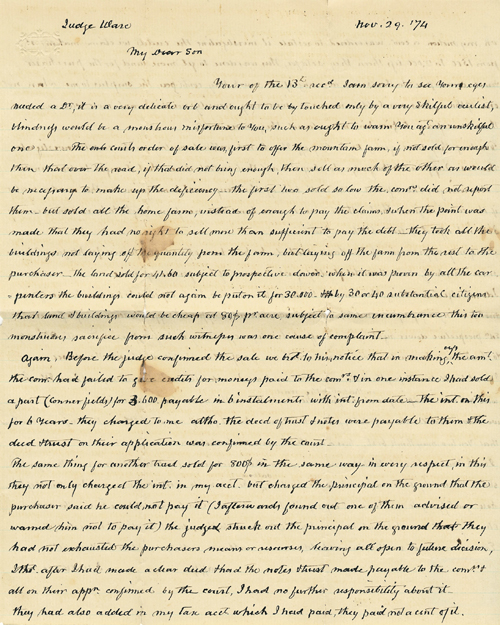 Judge Ware Nov. 29. '74
My Dear Son
Your of the 13th recd I am sorry to see Your eyes
needed a Dr, it is a very delicate orb and ought to be by touched only by a very skilful oculist,
blindness would be a monstrous misfortune to You, such as ought to warn You of an unskilful
one The only courts order of sale was first to offer the mountain farm, if not sold for enough
then that over the road, if that did not bring enough, then sell as much of the other as would
be necessary to make up the deficiency — the first two sold so low the comrs did not report
them — but sold all the home farm, instead of enough to pay the claims & when the point was
made that they had no right to sell more than sufficient to pay the debt — they took all the
buildings not laying off the quantity from the farm, but laying off the farm from the rest to the
purchaser — the land sold for 41.60 subject to prospective dower, when it was proven by all the car
penters the buildings could not again be put on it for 30.000 — by 30 or 40 substantial citizens
that land & buildings would be cheap at 80$ pr acre subject to same incumbrance this too
monstrous sacrifice from such witnesses was one cause of complaint
Again. Before the judge confirmed the sale we bro't to his notice that in making up the amt
the comrs had failed to give credits for moneys paid to the comrs & in one instance I had sold
a part (corner fields) for 3.600 payable in 6 instalments with int. from date — the int. on this
for 6 Years. they charged to me altho. the deed of trust & notes were payable to them & the
deed & trust on their application was confirmed by the court
The same thing for another tract sold for 800$ in the same way in every respect, in this
they not only charged the int. in my acct. but charged the principal on the ground that the
purchaser said he could not pay it (I afterwards found out one of them advised or
warned him not to pay it) the judge struck out the principal on the ground that they
had not exhausted the purchasers means or resources, leaving all open to future decision,
I tho. after I had made a clear deed & had the notes & trust made payable to the comrs &
all on their appn confirmed by the court, I had no further responsibility about it.
they had also added in my tax acct. which I had paid, they paid not a cent of it.